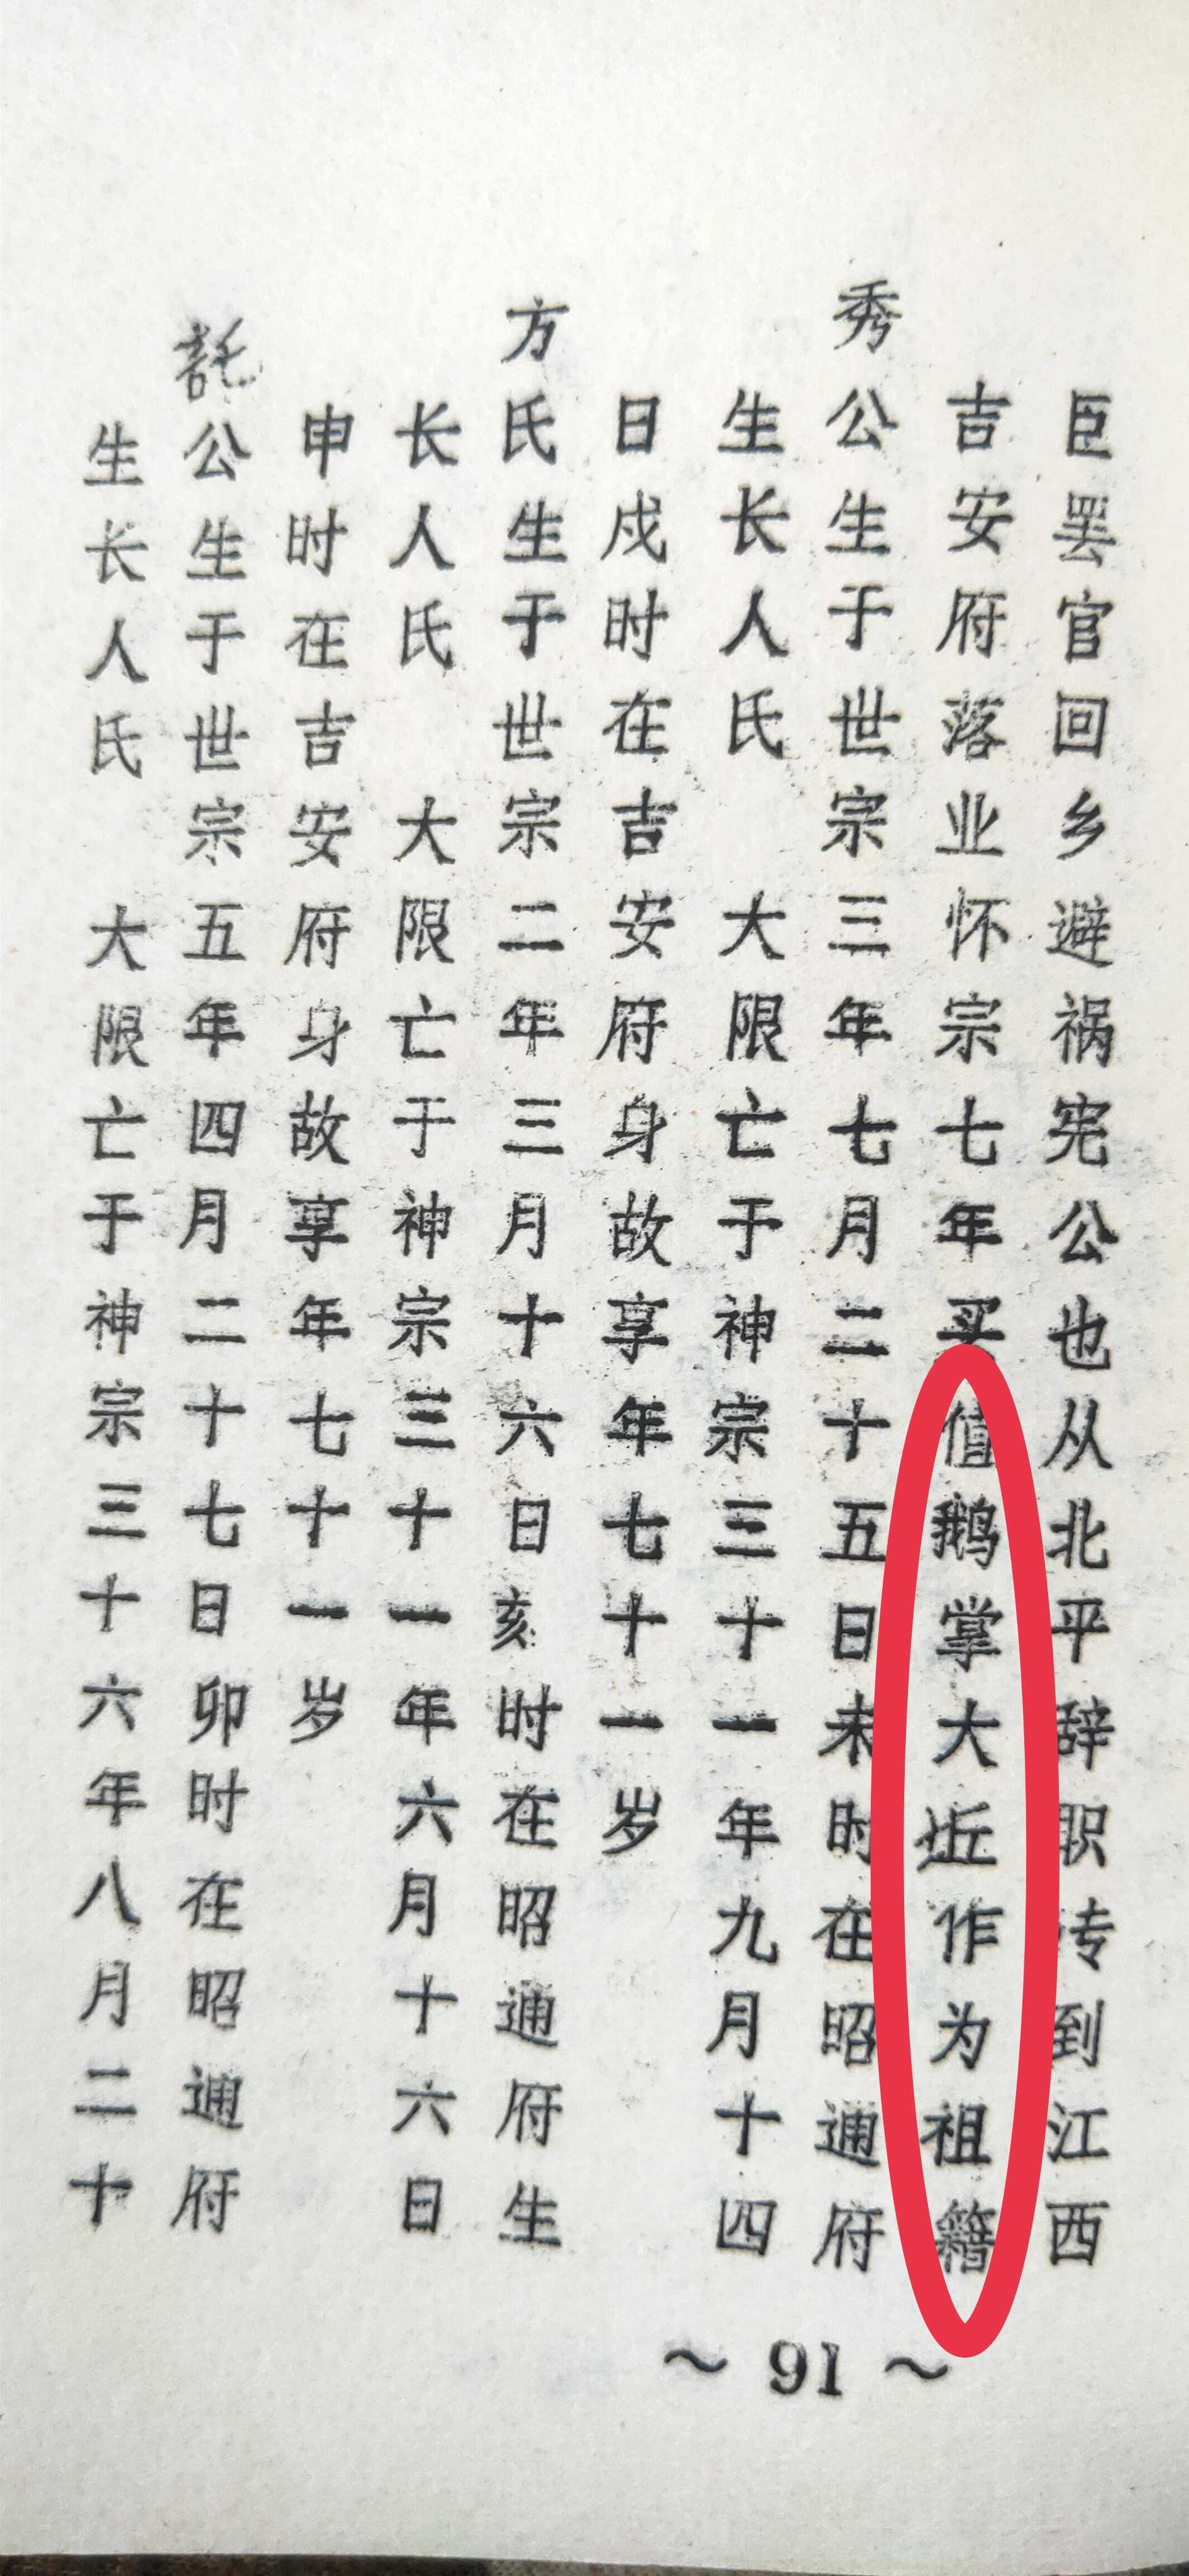 臣罢官回乡避祸宪公也从北平辞职传到江西
吉安府落业怀宗七年买值鹅掌大坵作为祖籍
秀公生于世宗三年七月二十五日未时在昭通府
生长人氏 大限亡于神宗三十一年九月十四
日戍时在吉安府身故享年七十一岁
方氏生于世宗二年三月十六日亥时在昭通府生
长人氏 大限亡于神宗三十一年六月十六日
申时在吉安府身故享年七十一岁
託公生于世宗五年四月二十七日卯时在昭通府
生长人氏 大限亡于神宗三十六年八月二十
～91～